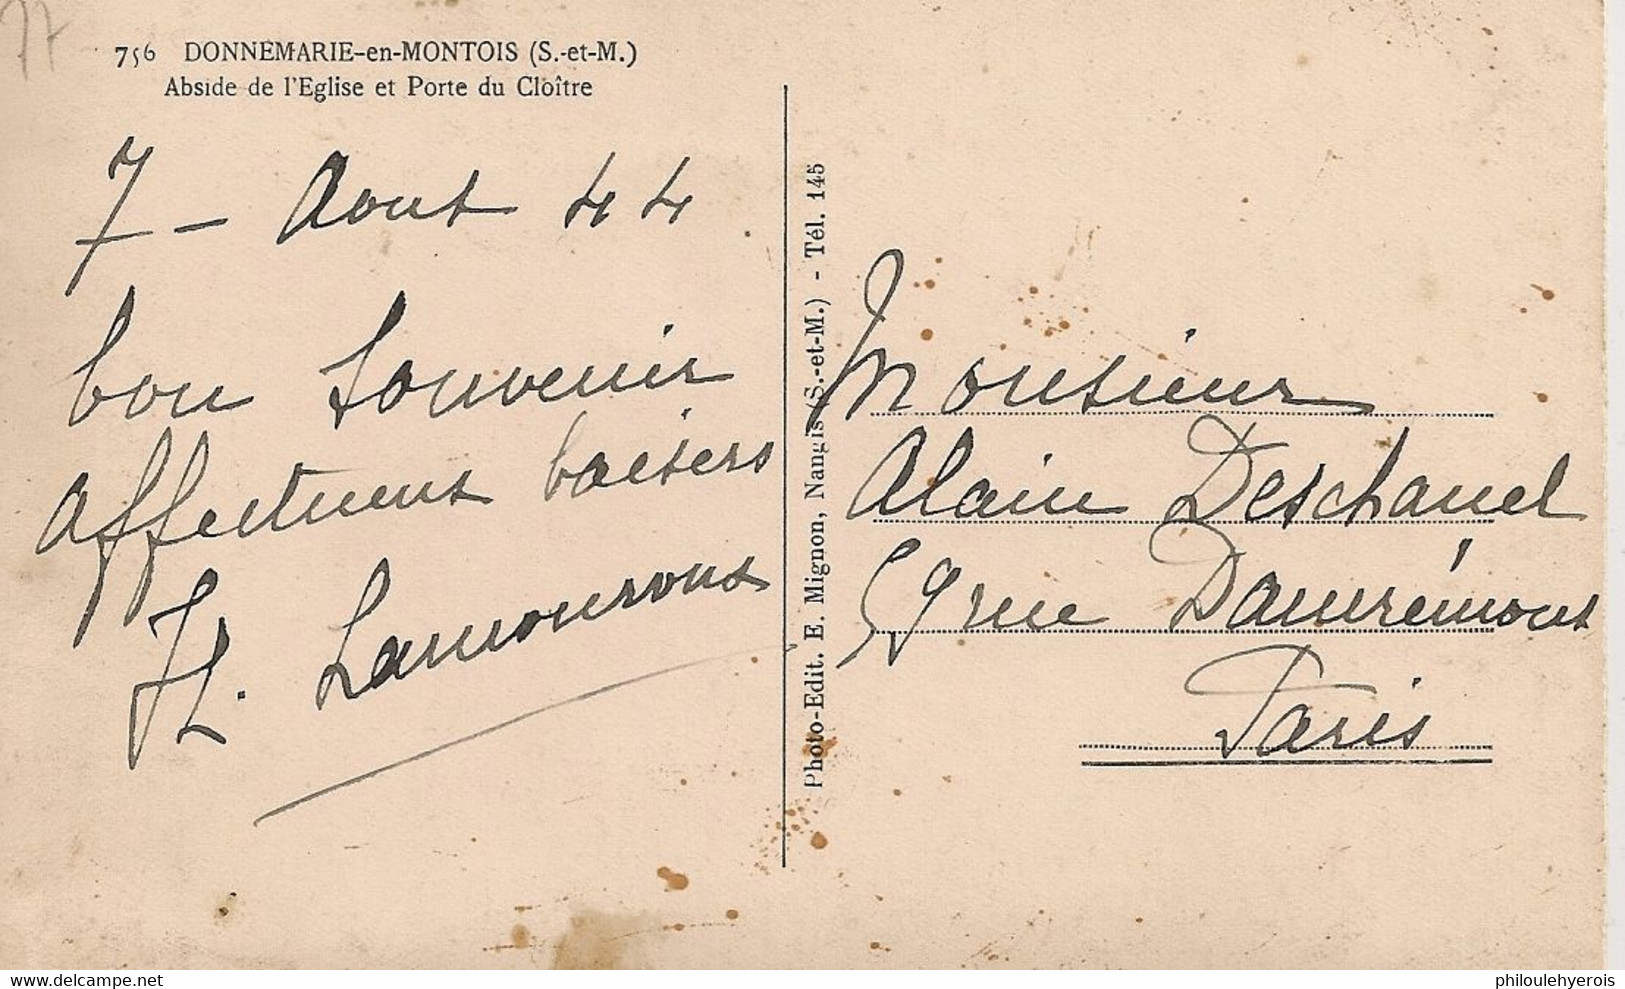 77
756 DONNEMARIE-en-MONTOIS (S.-et-M.)
Abside de l'Eglise et Porte du Cloître
7 - Aout 44
bon souvenir
affectueux baisers
H. Lamouroux
Photo-Edit. E. Mignon, Nangis (S.-et-M.) - Tél. 145
Monsieur
Alain Deschanel
59 rue Damrémont
Paris
delcampe.net
philoulehyerois